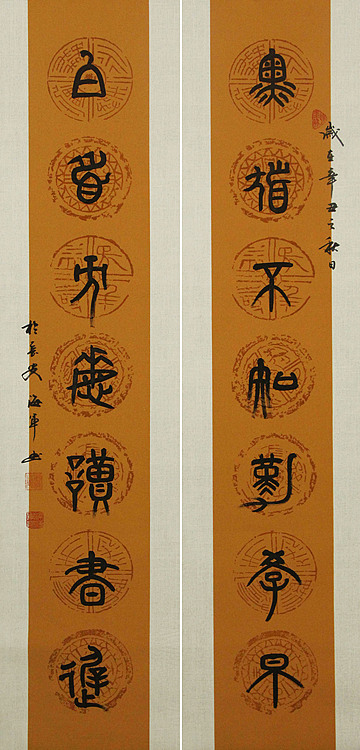 黑髮不知勤學早
白首方悔讀書遲
歲在辛丑之秋日
於長安海軍書